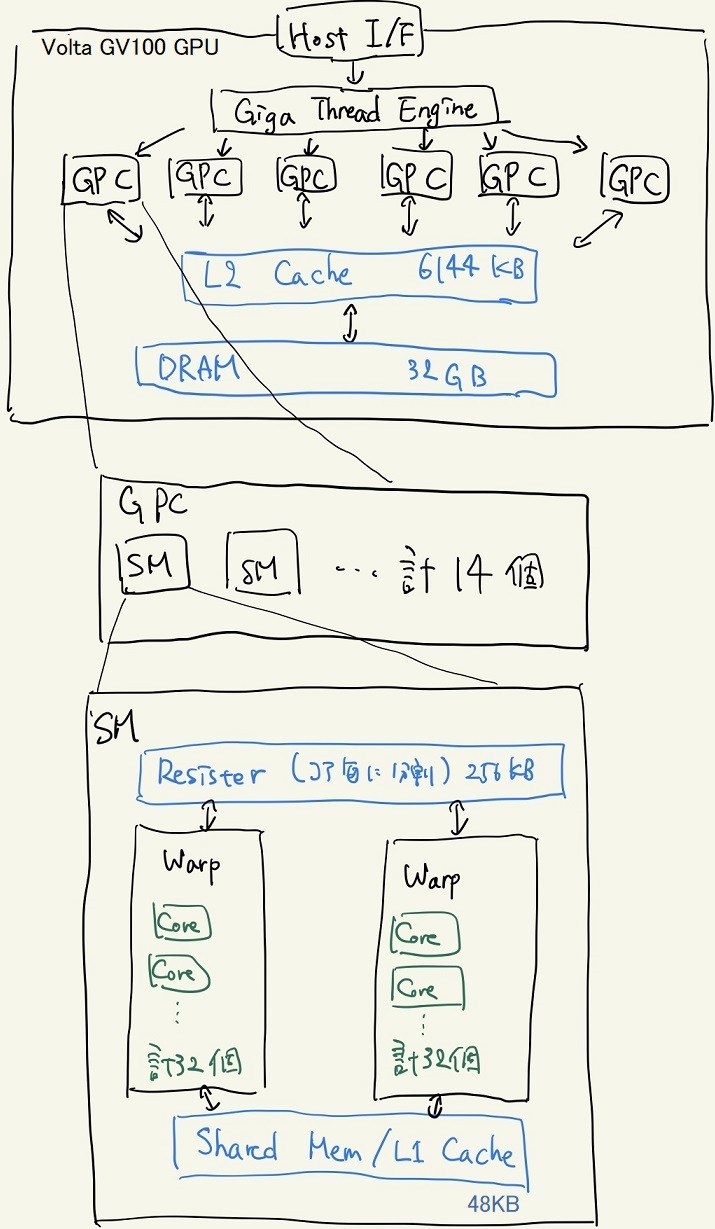 Host I/F
Volta GV100 GPU
Giga Thread Engine
GPC GPC GPC GPC GPC GPC
L2 Cache 6144 KB
DRAM 32GB
GPC
SM SM … 計14個
SM
Resister (コア毎に分割) 256KB
Warp Warp
Core Core
Core Core
計32個 計32個
Shared Mem/L1 Cache
48KB